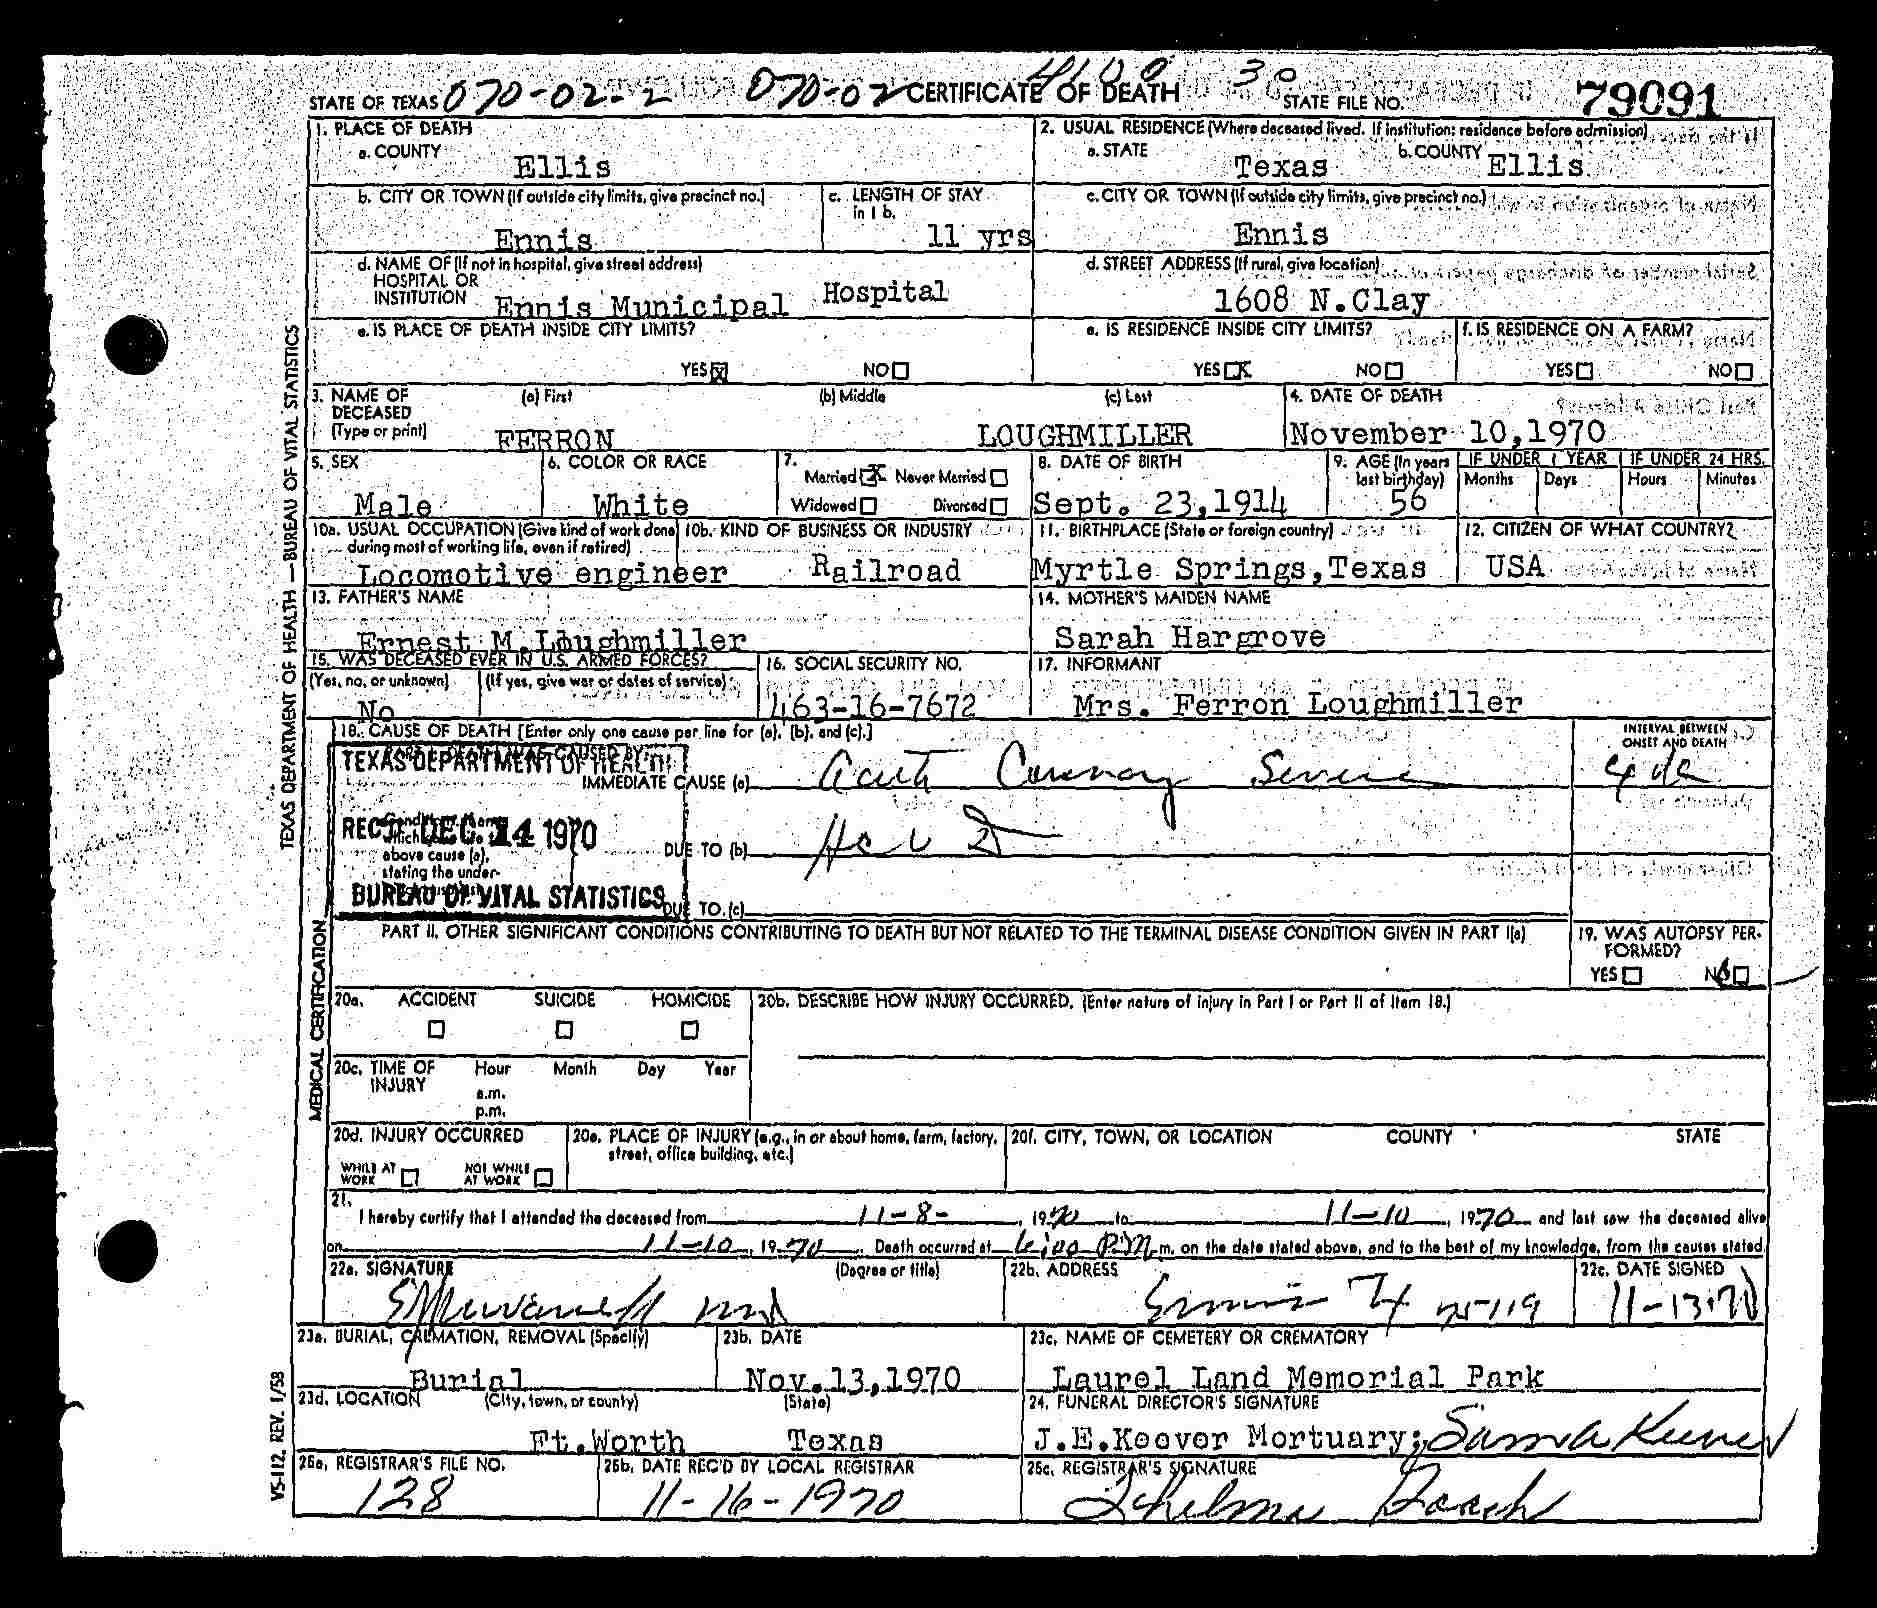 STATE OF TEXAS 070-02-2 070-02 CERTIFICATE OF DEATH STATE FILE NO. 79091
1. PLACE OF DEATH
a. COUNTY
Ellis
2. USUAL RESIDENCE (Where deceased lived. If institution: residence before admission)
a. STATE
Texas
b. COUNTY
Ellis
b. CITY OR TOWN (If outside city limits, give precinct no.)
Ennis
c. LENGTH OF STAY
in 1 b.
11 yrs
c. CITY OR TOWN (If outside city limits, give precinct no.)
Ennis
d. NAME OF (If not in hospital, give street address)
HOSPITAL OR
INSTITUTION
Ennis Municipal Hospital
d. STREET ADDRESS (If rural, give location)
1608 N.Clay
e. IS PLACE OF DEATH INSIDE CITY LIMITS?
YES X NO
e. IS RESIDENCE INSIDE CITY LIMITS?
YES X NO
f. IS RESIDENCE ON A FARM?
YES NO
3. NAME OF
DECEASED
(Type or print)
(a) First
FERRON
(b) Middle
(c) Last
LOUGHMILLER
4. DATE OF DEATH
November 10,1970
5. SEX
Male
6. COLOR OR RACE
White
7.
Married X Never Married
Widowed Divorced
8. DATE OF BIRTH
Sept. 23,1914
9. AGE (In years
last birthday)
56
IF UNDER 1 YEAR
Months Days
IF UNDER 24 HRS.
Hours Minutes
10a. USUAL OCCUPATION (Give kind of work done
during most of working life, even if retired)
Locomotive engineer
10b. KIND OF BUSINESS OR INDUSTRY
Railroad
11. BIRTHPLACE (State or foreign country)
Myrtle Springs,Texas
12. CITIZEN OF WHAT COUNTRY?
USA
13. FATHER'S NAME
Ernest M.Loughmiller
14. MOTHER'S MAIDEN NAME
Sarah Hargrove
15. WAS DECEASED EVER IN U.S. ARMED FORCES?
(Yes, no, or unknown) (If yes, give war or dates of service)
No
16. SOCIAL SECURITY NO.
463-16-7672
17. INFORMANT
Mrs. Ferron Loughmiller
18. CAUSE OF DEATH [Enter only one cause per line for (a), (b), and (c).]
INTERVAL BETWEEN
ONSET AND DEATH
PART I. DEATH WAS CAUSED BY:
TEXAS DEPARTMENT OF HEALTH
IMMEDIATE CAUSE (a)
REC'D DEC 14 1970
above cause (a),
stating the under-
DUE TO (b)
BUREAU OF VITAL STATISTICS
DUE TO (c)
PART II. OTHER SIGNIFICANT CONDITIONS CONTRIBUTING TO DEATH BUT NOT RELATED TO THE TERMINAL DISEASE CONDITION GIVEN IN PART I(a)
19. WAS AUTOPSY PER-
FORMED?
YES NO
20a. ACCIDENT SUICIDE HOMICIDE
20b. DESCRIBE HOW INJURY OCCURRED. (Enter nature of injury in Part I or Part II of Item 18.)
20c. TIME OF
INJURY
Hour Month Day Year
a.m.
p.m.
20d. INJURY OCCURRED
WHILE AT
WORK
NOT WHILE
AT WORK
20e. PLACE OF INJURY (e.g., in or about home, farm, factory,
street, office building, etc.)
20f. CITY, TOWN, OR LOCATION COUNTY STATE
21.
I hereby certify that I attended the deceased from 11-8-, 1970 to 11-10, 1970 and last saw the deceased alive
on 11-10, 1970. Death occurred at 6:00 P.M m. on the date stated above, and to the best of my knowledge, from the causes stated.
22a. SIGNATURE (Degree or title)
22b. ADDRESS
Ennis Tx 75119
22c. DATE SIGNED
11-13-70
23a. BURIAL, CREMATION, REMOVAL (Specify)
Burial
23b. DATE
Nov.13,1970
23c. NAME OF CEMETERY OR CREMATORY
Laurel Land Memorial Park
23d. LOCATION (City, town, or county) (State)
Ft.Worth Texas
24. FUNERAL DIRECTOR'S SIGNATURE
J.E.Keever Mortuary;
25a. REGISTRAR'S FILE NO.
128
25b. DATE REC'D BY LOCAL REGISTRAR
11-16-1970
25c. REGISTRAR'S SIGNATURE
Thelma Roach
TEXAS DEPARTMENT OF HEALTH — BUREAU OF VITAL STATISTICS
MEDICAL CERTIFICATION
VS-112. REV. 1/58